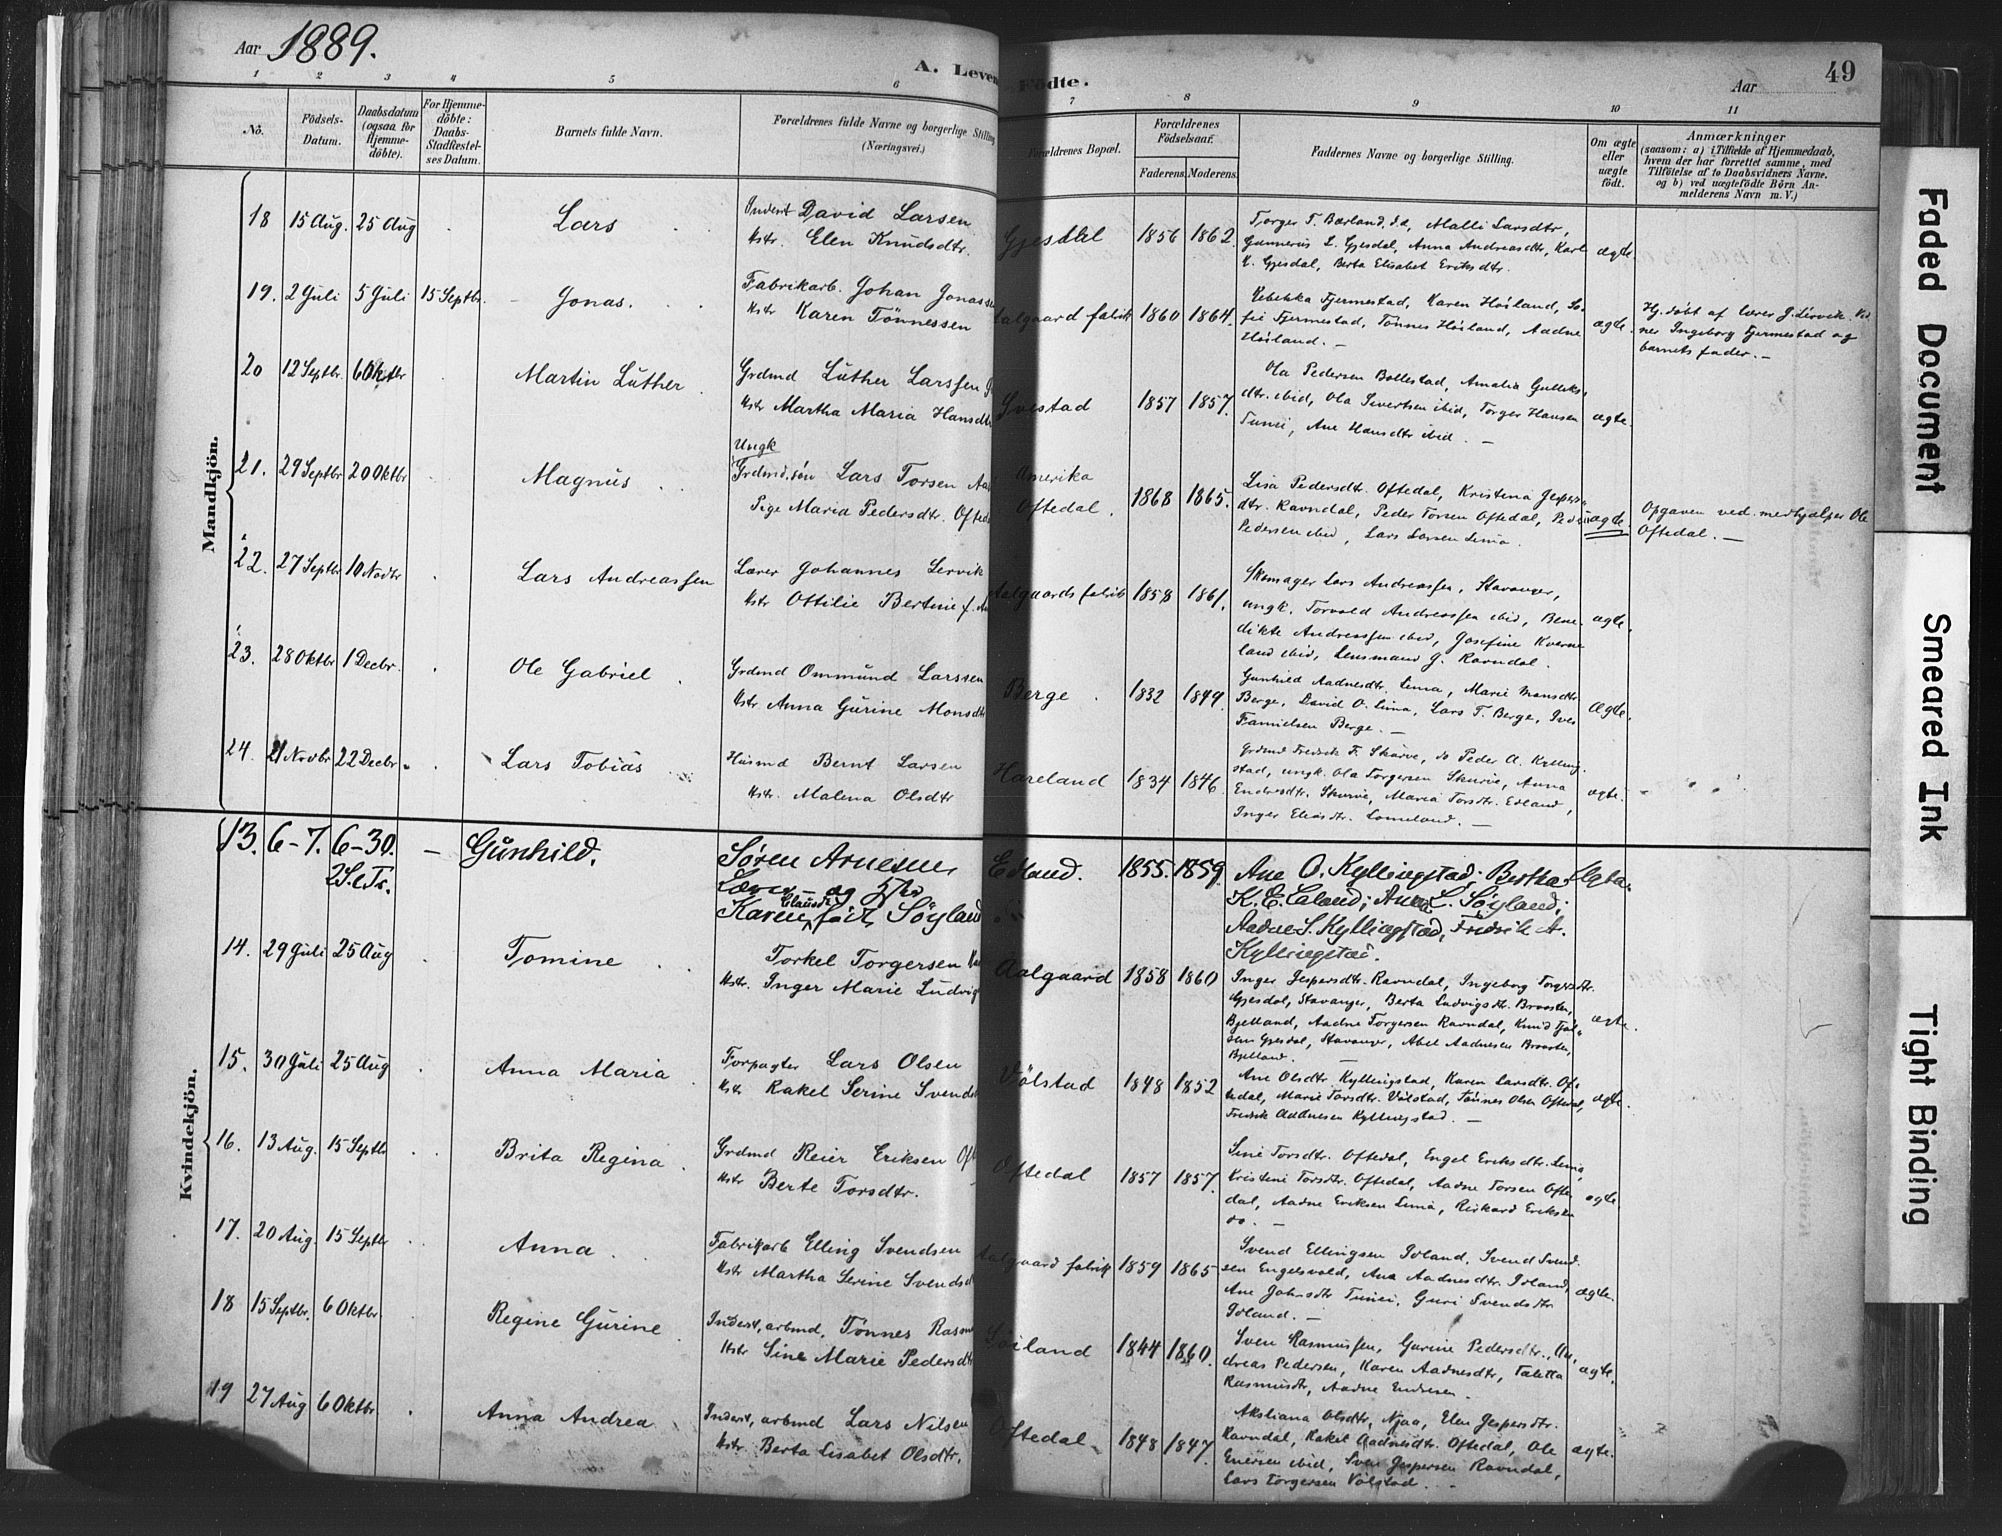 Aar 1889.
A. Leven Födte.
Aar
49
1 2 3 4 5 6 7 8 9 10 11
No.
Födsels-
Datum.
Daabsdatum
(ogsaa for
Hjemme-
döbte).
For Hjemme-
döbte:
Daabs-
Stadfæstel-
ses Datum.
Barnets fulde Navn.
Forældrenes fulde Navne og borgerlige Stilling
(Næringsvei.)
Forældrenes Bopæl.
Forældrenes
Födselsaar.
Faderens. Moderens.
Faddernes Navne og borgerlige Stilling.
Om ægte
eller
uægte
födt.
Anmærkninger
(saasom: a) i Tilfælde af Hjemmedaab,
hvem der har forrettet samme, med
Tilföielse af to Daabsvidners Navne.
og b) ved uægtefödte Börn An-
melderens Navn m. V.)
Mandkjön.
18 15 Aug. 25 Aug Lars
Inderst David Larsen
Kstr. Elen Knudsdtr.
Gjesdal 1856 1862.
Torger T. Bærland, Malli Larsdtr,
Gunnerius L. Gjesdal, Anna Andreasdtr, Karl
K. Gjesdal, Berta Elisabet Eriksdtr.
ægte.
19. 2 Juli 5 Juli 15 Septbr. Jonas.
Fabrikarb. Johan Jonassen
Kstr Karen Tönnessen
Aalgaard fabrik 1860 1864.
Rebekka Fjermestad, Karen Höiland, So-
fie Fjermestad, Tönnes Höiland, Aadne
Höiland. —
ægte.
Hj. döbt af lærer J. Lervik. Vid-
ner Ingeborg Fjermestad og
barnets fader. —
20 12 Septbr. 6 Oktbr Martin Luther
Grdmd Luther Larssen
Kstr Martha Maria Hansdtr
1857 1857.
Ola Pedersen Bollestad, Amalia Gulleks-
dtr. ibid, Ola Sivertsen ibid, Torger Hansen
Tunei, Ane Hansdtr ibid. —
ægte.
21. 29 Septbr 20 Oktbr Magnus
Ungk
Grdmd. sön Lars Torsen
Pige Maria Pedersdtr.
Amerika
Oftedal. 1868 1865.
Lisa Pedersdtr. Oftedal, Kristena Jespers-
dtr. Ravndal, Peder Torsen Oftedal, Peder
Pedersen ibid, Lars Larsen Lima.
uægte.
Opgaven ved. medhjelper Ole
Oftedal. —
22. 27 Septbr 10 Novbr Lars Andreassen
Lærer Johannes Lervik
Kstr Ottilie Bertine f.
Aalgaards fabrik 1858 1861.
Skomager Lars Andreassen, Stavanger,
ungk. Torvald Andreassen ibid, Bene-
dikte Andreassen ibid, Josefine Kverne-
land ibid, Lensmand J. Ravndal.
ægte.
23. 28 Oktbr 1 Decbr. Ole Gabriel
Grdmd Ommund Larssen
Kstr Anna Gurine Monsdtr
Berge. 1832 1849.
Gunhild Aadnesdtr. Lima, Marie Monsdtr
Berge, David O. Lima, Lars T. Berge, Ives
Berge. —
Ægte.
24. 21 Novbr 22 Decbr. Lars Tobias
Husmd Bernt Larsen
Kstr. Malena Olsdtr
Hareland 1834 1846.
Grdmd Fredrik F. Skurve, do Peder A. Kylling-
stad, ungk. Ola Torgersen Skurve, Anna
Endresdtr. Skurve, Maria Torsdtr. Edland,
Inger Eliasdtr. —
ægte.
Kvindekjön.
13. 6-7. 6-30. — Gunhild.
Sören Arnesen
Lærer — og H.
Clausdr
Karen, föd Söyland
Edland. 1855. 1859.
Ane O. Kyllingstad; Bertha
K. E. Edland; Anna L. Söyland;
Aadne S. Kyllingstad, Fredrik A.
Kyllingstad.
14. 29 Juli 25 Aug Tomine
Torkel Torgersen
Kstr. Inger Marie Ludvig
Aalgaard 1858 1860
Inger Jespersdtr. Ravndal, Ingeborg Torgersdtr.
Gjesdal, Stavanger, Berta Ludvigsdtr.
Bjelland, Aadne Torgersen Ravndal, Knud
Gjesdal, Stavanger, Abel Aadnesen
Bjelland. —
ægte.
15. 30 Juli 25 Aug Anna Maria
Forpagter Lars Olsen
Kstr Rakel Serine Svends
Völstad 1848 1852
Ane Olsdtr Kyllingstad, Karen Larsdtr. Of-
tedal, Marie Torsdtr. Völstad, Tönnes Olsen Oftedal,
Fredrik Aadnesen Kyllingstad. —
ægte.
16. 13 Aug. 15 Septbr Brita Regina
Grdmd Reier Eriksen
Kstr Berte Torsdtr.
Oftedal 1857 1857.
Sine Torsdtr. Oftedal, Engel Eriksdtr. Lima,
Kristine Torsdtr. Oftedal, Aadne Torsen Ofte-
dal, Aadne Eriksen Lima, Rikard Eriksen
do. —
ægte.
17. 20 Aug. 15 Septbr Anna
Fabrikarb Elling Svendsen
Kstr Martha Serine Svends
Aalgaard fabrik 1859 1865
Svend Ellingsen Idland, Svend Svend-
sen Engelsvold, Ane Aadnesdtr. Idland,
Ane Johsdtr Tunei, Guri Svendsdtr
Idland. —
ægte.
18 15 Septbr. 6 Oktbr Regine Gurine
Inderst, arbmd. Tönnes Rasm
Kstr Sine Marie Pedersdtr
Söiland 1844 1860.
Sven Rasmussen, Gurine Pedersdtr., An-
dreas Pedersen, Karen Aadnesdtr, Taletta
Rasmusdtr, Aadne Endresen.
ægte.
19 27 Aug 6 Oktbr Anna Andrea
Inderst, arbmd Lars Nilsen
Kstr. Berta Lisabet Olsdtr.
Oftedal 1848 1847.
Olsdtr, Njaa, Elen Jespersdtr.
Ravndal, Rakel Aadnesdtr. Oftedal, Ole
ibid, Sven Jespersen Ravndal,
Lars Torgersen Völstad.
ægte.
Faded Document
Smeared Ink
Tight Binding